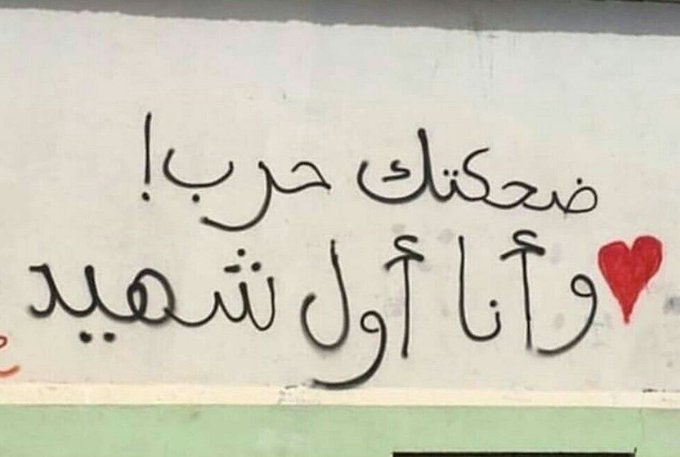 ضحكتك حرب!
وأنا أول شهيد